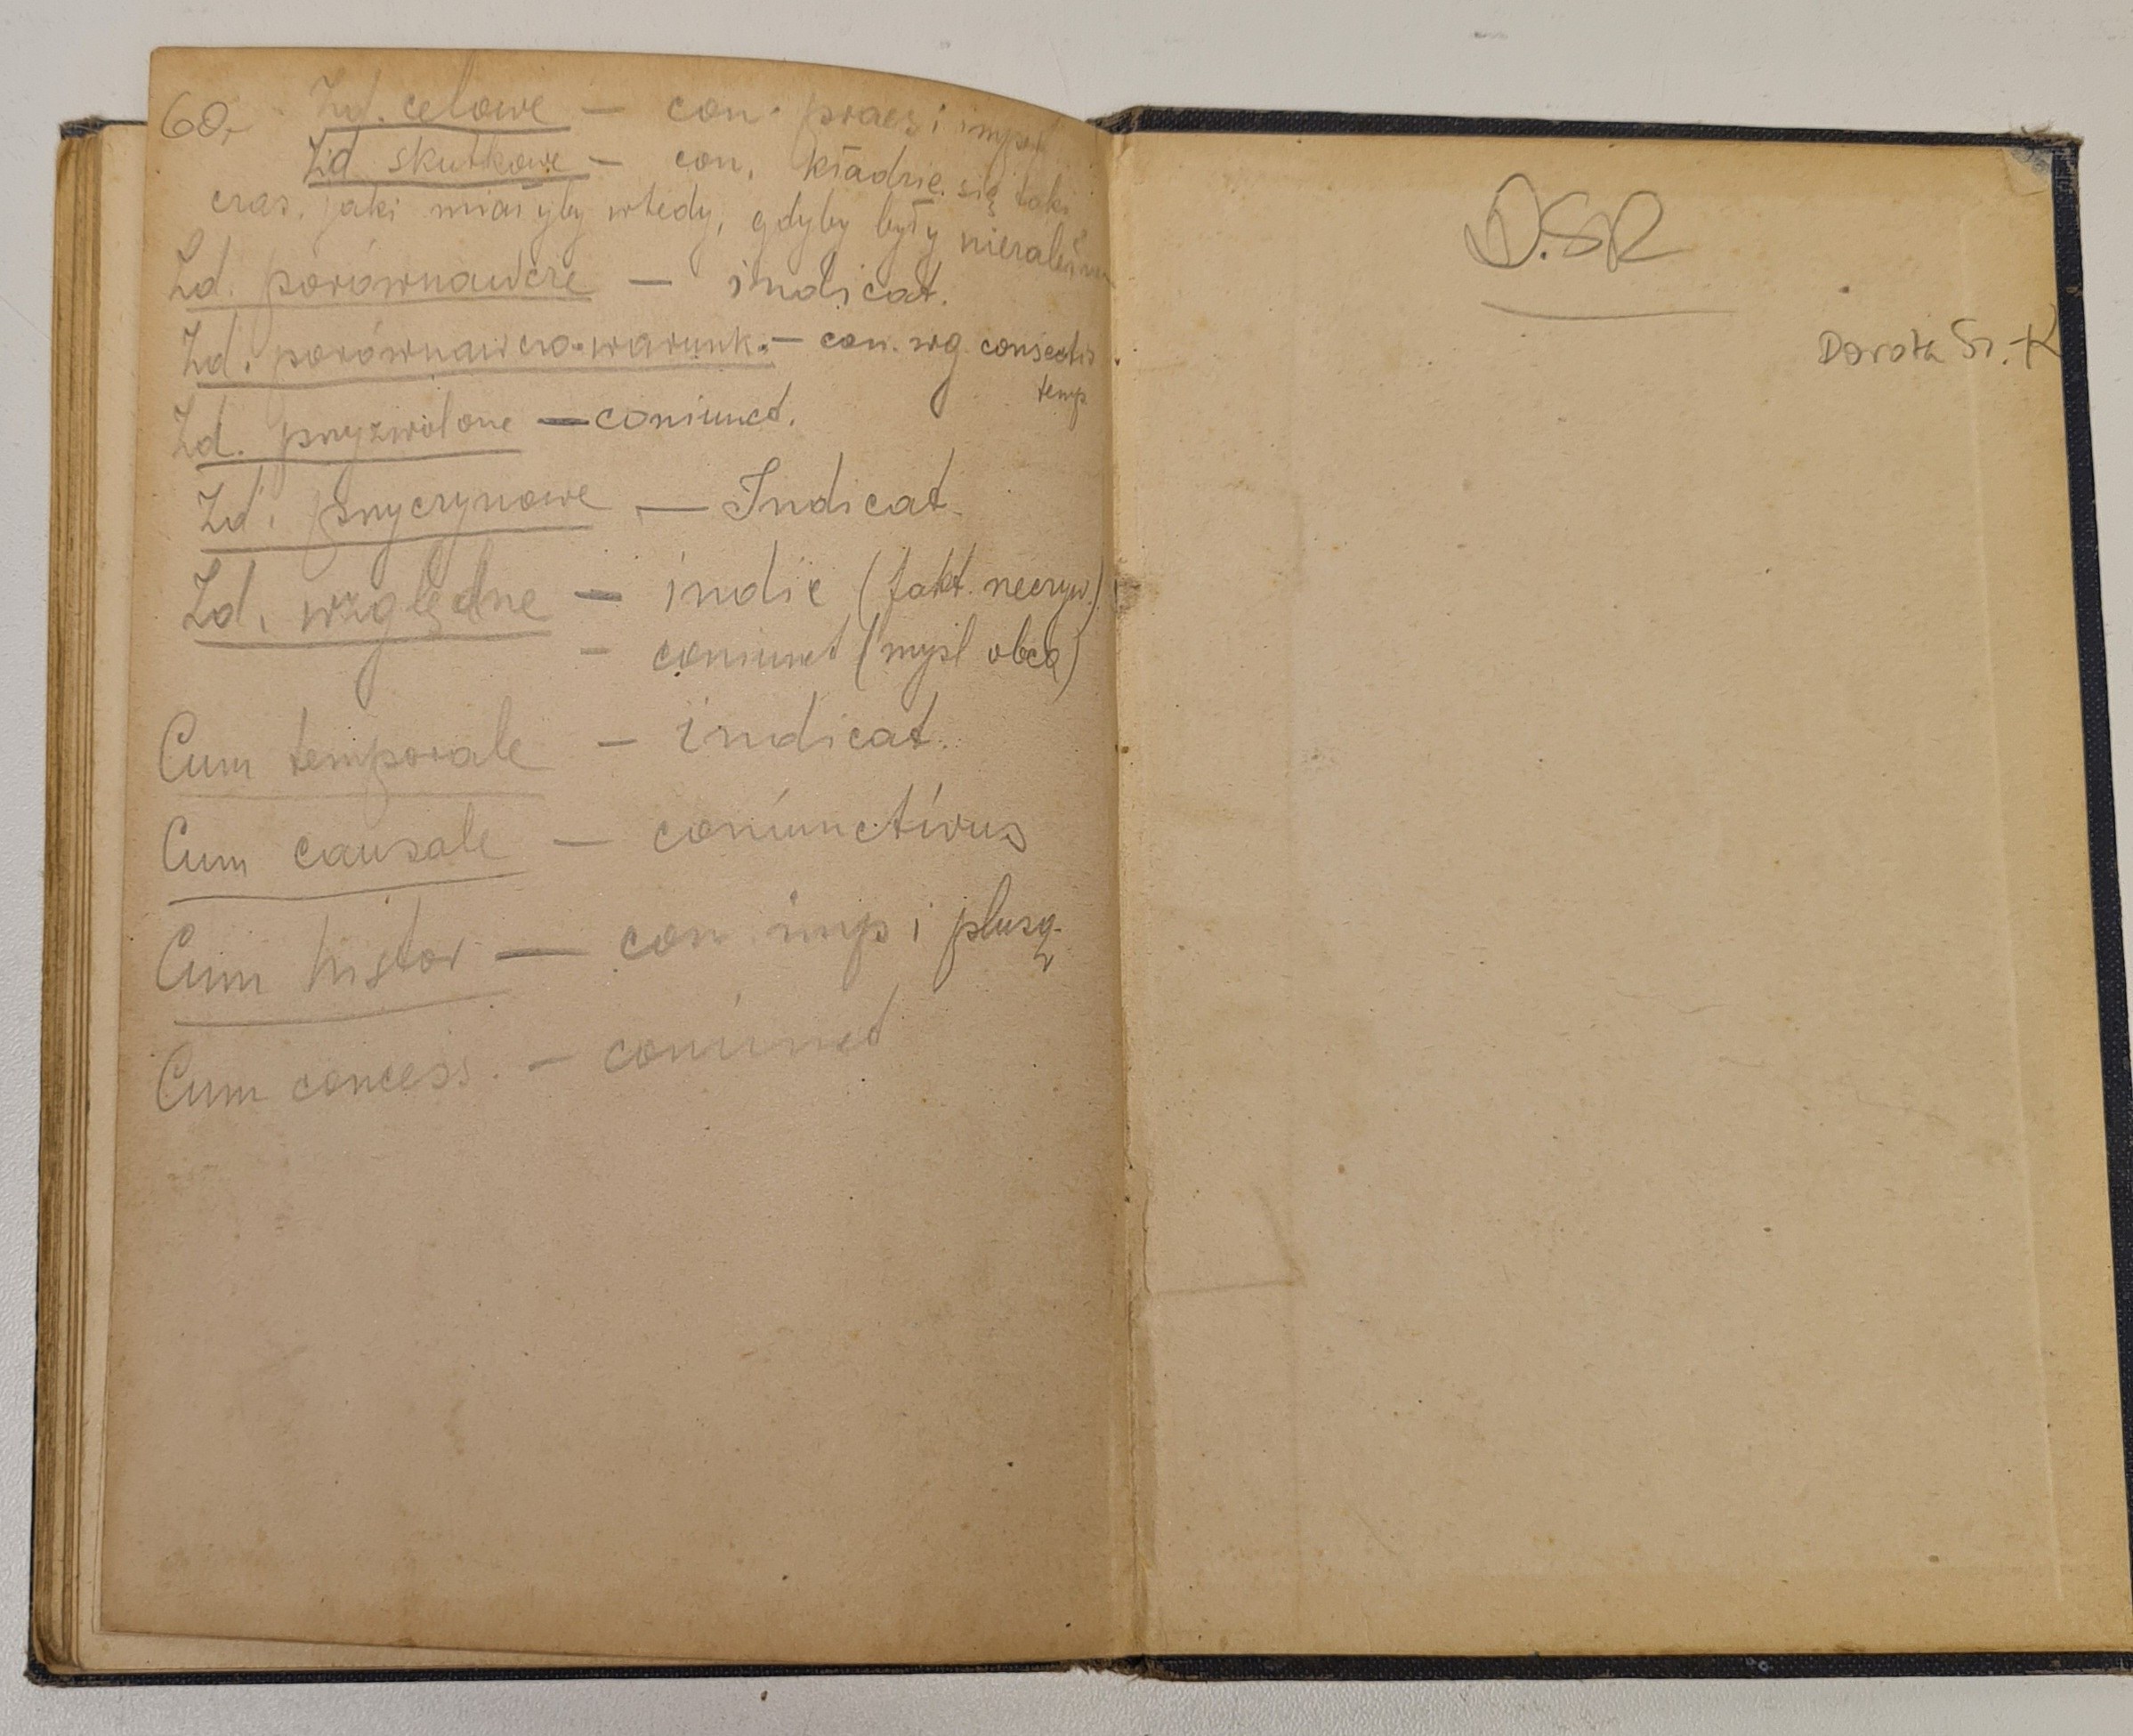 60,-
Zd. celowe — con. praes i impf
Zd skutkowe — con. kładzie się taki
czas, jaki miałyby wtedy, gdyby były niezależne
Zd. porównawcze — indicat.
Zd. porównawczo-warunk. — con. wg. consecutio
temp.
Zd. przyzwolone — coniunct.
Zd. przyczynowe — Indicat.
Zd. względne — indic (fakt. rzeczyw.)
— coniunct (myśl obca)
Cum temporale — indicat.
Cum causale — coniunctivus
Cum histor — con imp i plusq.
Cum concess. — coniunct
D.SR
Dorota